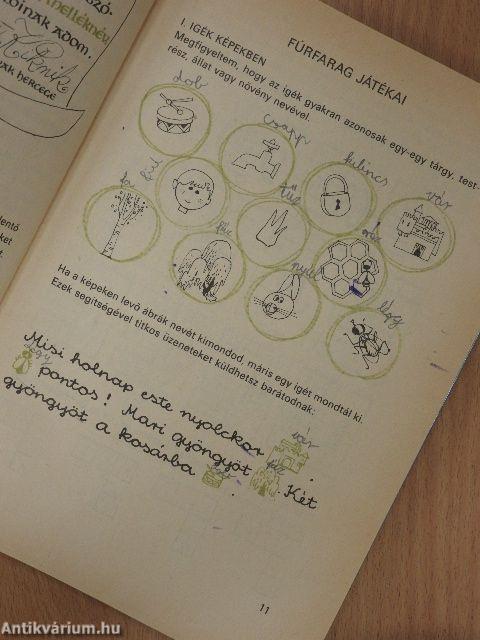 SZÓ-
ANELLÉKNEK
ADOM.
HERCEGE
lentő
ket
FÚRFARAG JÁTÉKAI
I. IGÉK KÉPEKBEN
Megfigyeltem, hogy az igék gyakran azonosak egy-egy tárgy, test-
rész, állat vagy növény nevével.
dob
csapp
kilincs
vár
fül
nyúl
légy
Ha a képeken levő ábrák nevét kimondod, máris egy igét mondtál ki.
Ezek segítségével titkos üzeneteket küldhetsz barátodnak:
Misi holnap este nyolckor
vár
pontos! Mari gyöngyöt
fűz
. Két
gyöngyöt a kosárba
11
Antikvárium.hu